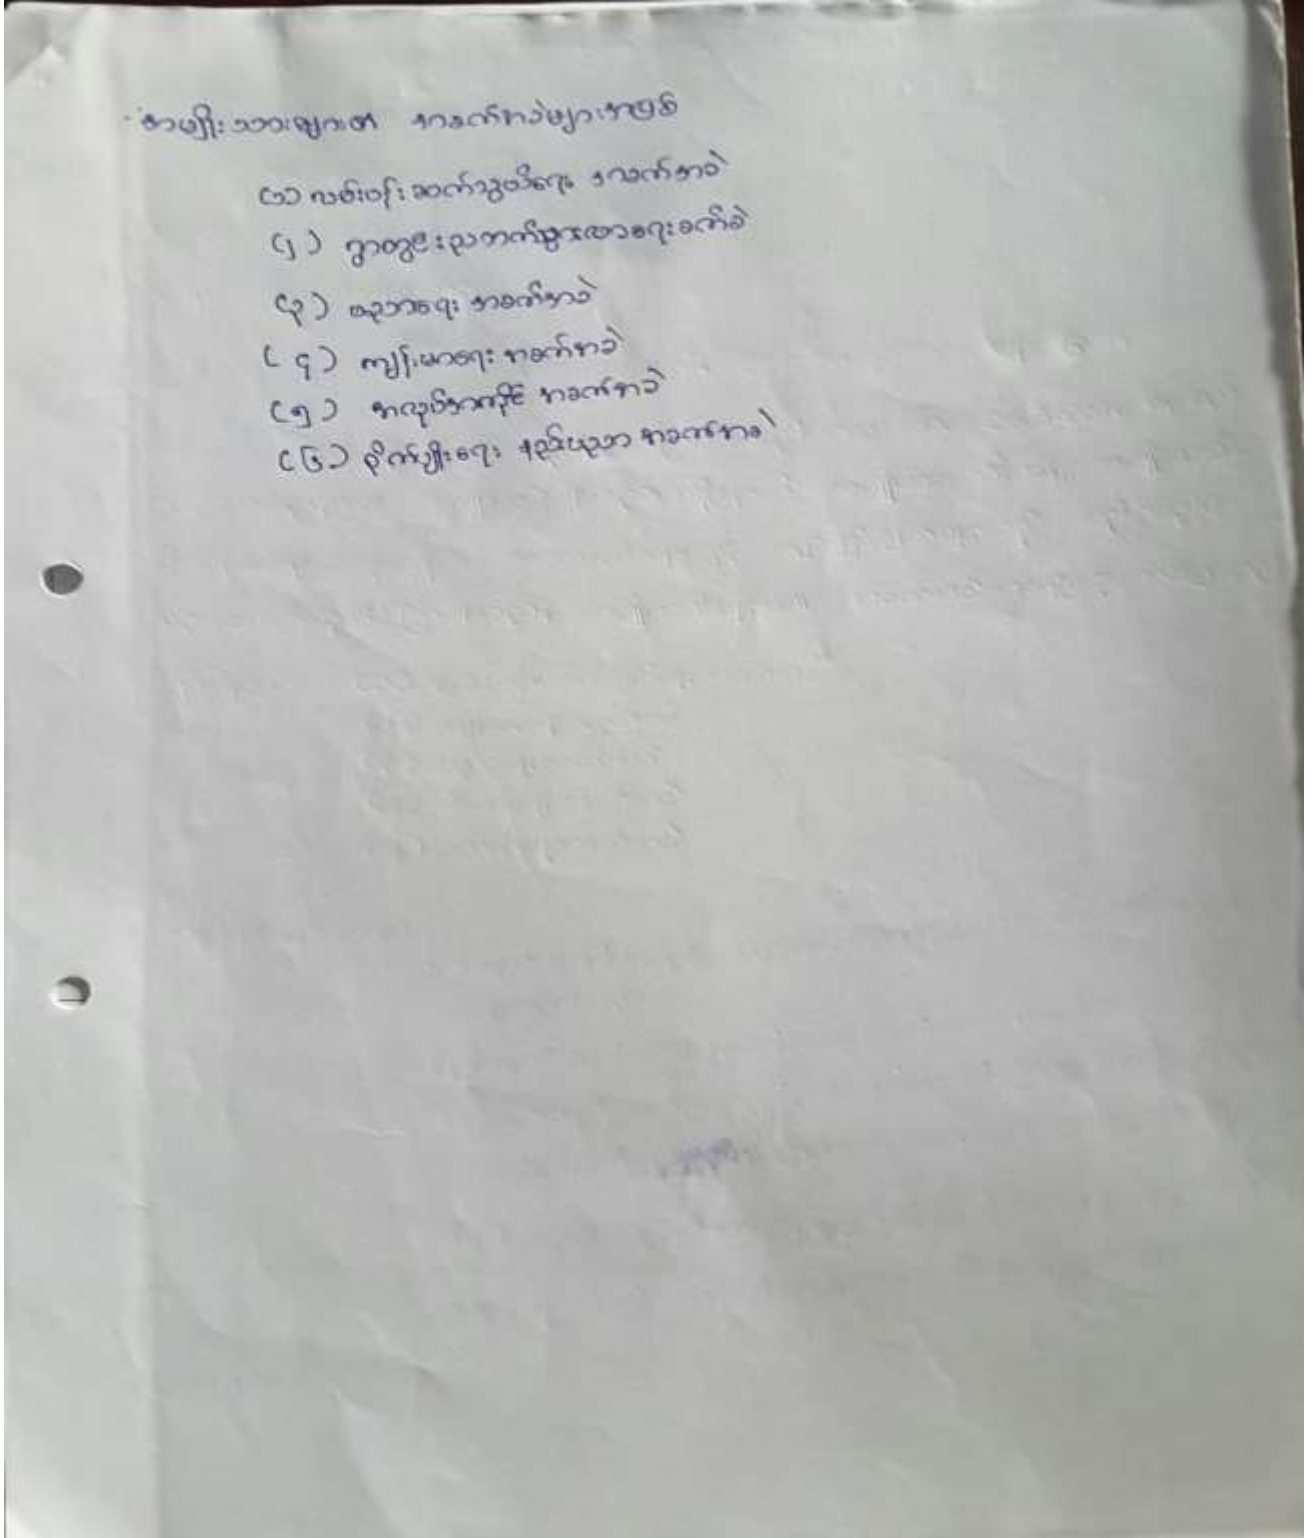 အမျိုးသားများ၏ အခက်အခဲများအဖြစ်
(၁) လမ်းပန်းဆက်သွယ်ရေး အခက်အခဲ
(၂) ရွာတွင်းညဘက်သွားလာရေးခက်ခဲ
(၃) ပညာရေး အခက်အခဲ
(၄) ကျန်းမာရေး အခက်အခဲ
(၅) အလုပ်အကိုင် အခက်အခဲ
(၆) စိုက်ပျိုးရေး နည်းပညာ အခက်အခဲ